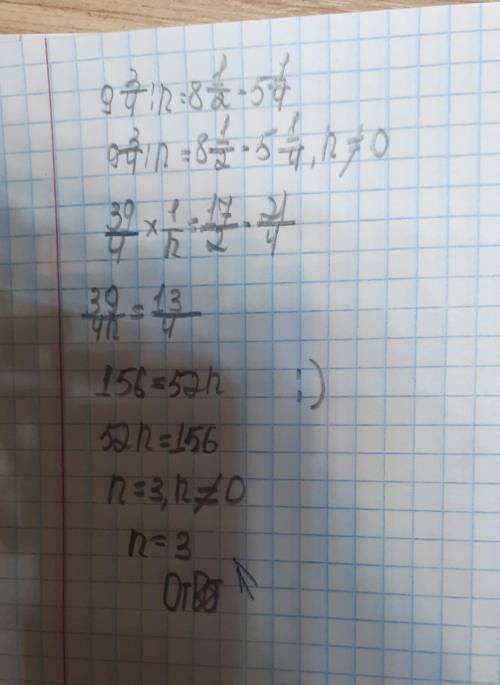 9 3/4 : n = 8 1/2 - 5 1/4
9 3/4 : n = 8 1/2 - 5 1/4, n ≠ 0
39/4 × 1/n = 17/2 - 21/4
39/4n = 13/4
156 = 52n :)
52n = 156
n = 3, n ≠ 0
n = 3
Ответ